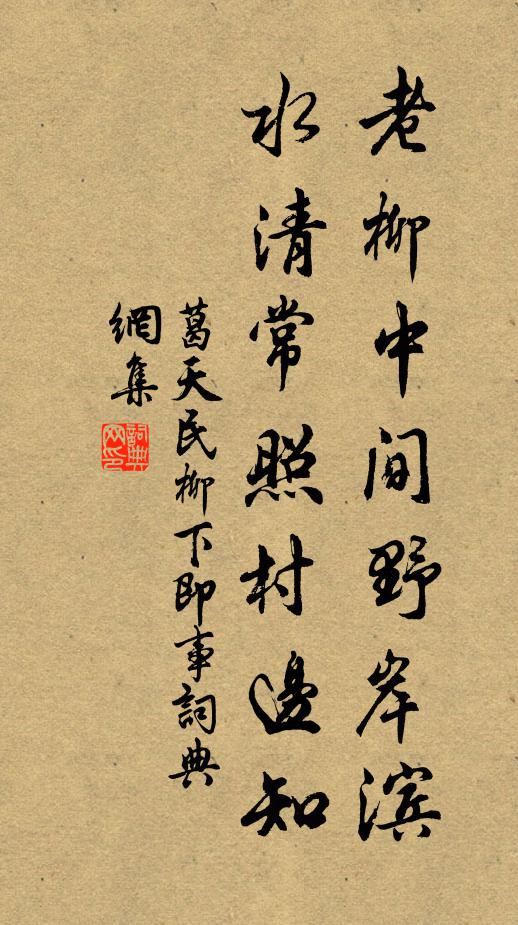 老柳中间野岸滨
水清常照村邊知
葛天民柳下即事詞典
網集
詞典
网印